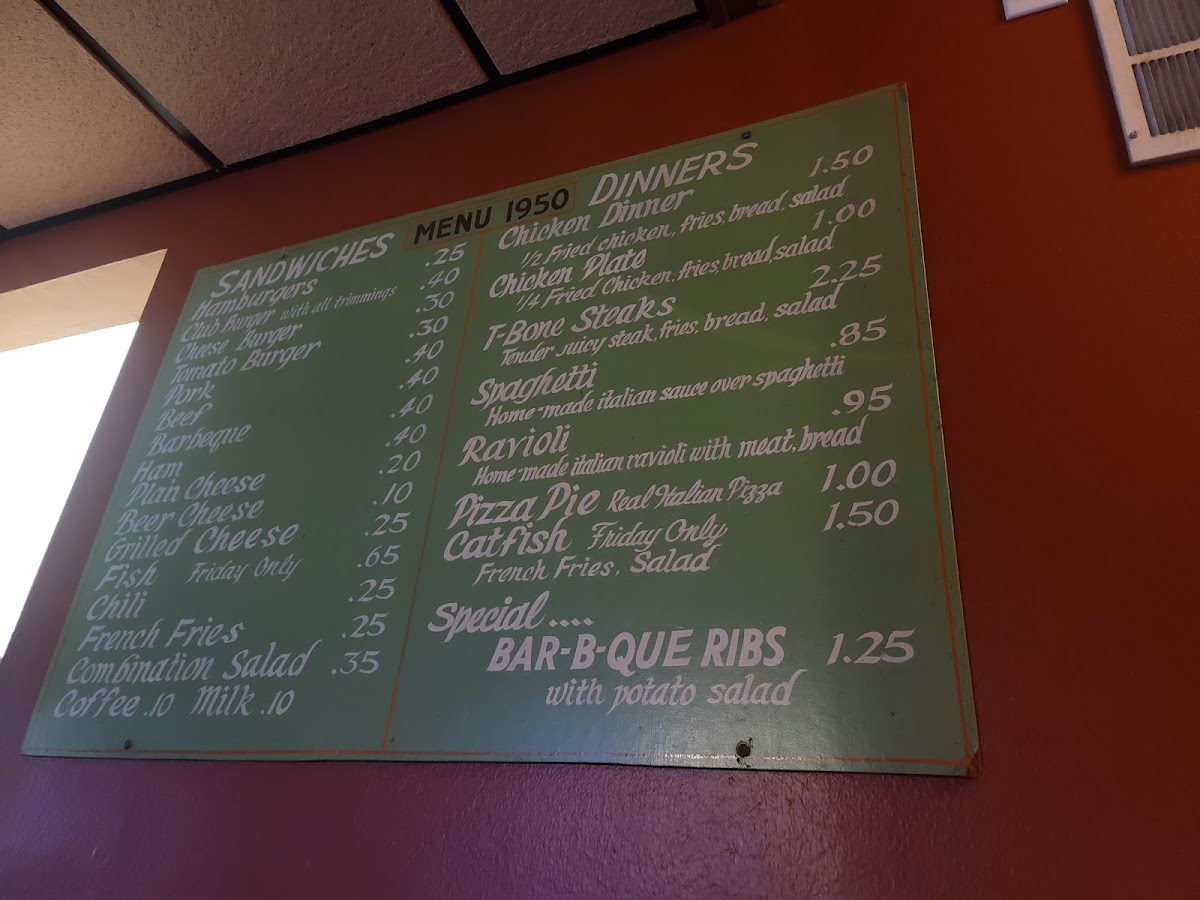 MENU 1950
SANDWICHES
Hamburgers .25
Club Burger with all trimmings .40
Cheese Burger .30
Tomato Burger .30
Pork .40
Beef .40
Barbeque .40
Ham .40
Plain Cheese .20
Beer Cheese .10
Grilled Cheese .25
Fish Friday Only .65
Chili .25
French Fries .25
Combination Salad .35
Coffee .10 Milk .10
DINNERS
Chicken Dinner 1.50
1/2 Fried chicken, fries, bread, salad
Chicken Plate 1.00
1/4 Fried Chicken, fries, bread, salad
T-Bone Steaks 2.25
Tender juicy steak, fries, bread, salad
Spaghetti .85
Home-made italian sauce over spaghetti
Ravioli .95
Home-made italian ravioli with meat, bread
Pizza Pie Real Italian Pizza 1.00
Catfish Friday Only 1.50
French Fries, Salad
Special ....
BAR-B-QUE RIBS 1.25
with potato salad